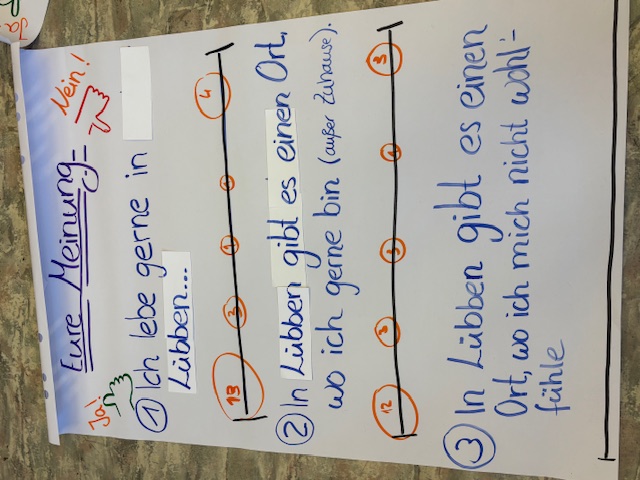 Eure Meinung
Ja!
Nein!
1 Ich lebe gerne in
Lübben...
13 3 1 4
2 In Lübben gibt es einen Ort,
wo ich gerne bin (außer Zuhause).
12 3 3 1 3
3 In Lübben gibt es einen
Ort, wo ich mich nicht wohl-
fühle